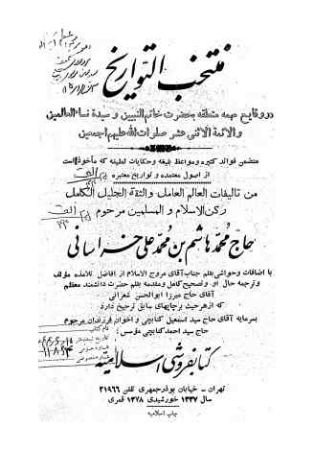 منتخب التواریخ
در وقایع مهمه متعلقه بحضرت خاتم النبیین و سیدة نساء العالمین
والائمة الاثنی عشر صلوات الله علیهم اجمعین
متضمن فوائد کثیره ومواعظ بلیغه وحکایات لطیفه که مأخوذ است
از اصول معتمده و تواریخ معتبره
من تالیفات العالم العامل والثقة الجلیل الکامل
رکن الاسلام و المسلمین مرحوم
حاج محمد هاشم بن محمد علی خراسانی
با اضافات وحواشی بقلم جناب آقای مروج الاسلام از افاضل تلامذه مؤلف
و ترجمه حال او و تصحیح کامل ومقدمه بقلم حضرت دانشمند معظم
آقای حاج میرزا ابوالحسن شعرانی
که از هر حیث بر چاپهای سابق ترجیح دارد
بسرمایه آقای حاج سید اسمعیل کتابچی و اخوان فرزندان مرحوم
حاج سید احمد کتابچی مؤسس:
کتابفروشی اسلامیه
تهران - خیابان بوذرجمهری تلفن ۲۱۹۶۶
سال ۱۳۳۷ خورشیدی ۱۳۷۸ قمری
چاپ اسلامیه